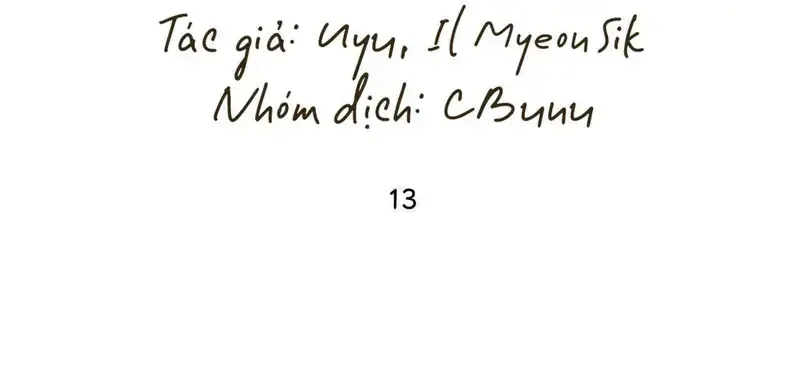 Tác giả: Uyu, Il Myeon Sik
Nhóm dịch: CBunu
13